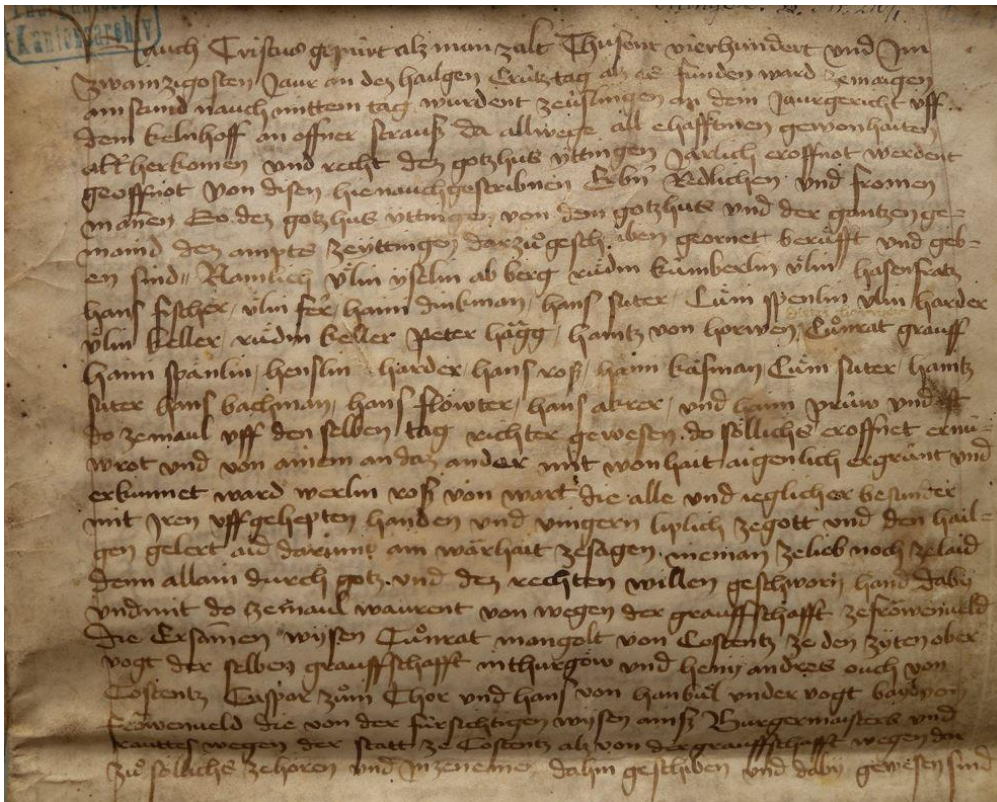 Kantonsarchiv
Nauch Cristus gepurt alz man zalt Thusent vierhundert und Im
zwainzigosten Jaur an dez hailgen Crútz tag alz es funden ward zemaigen
am stund nauch mittem tag wurdent zeúslingen an dem Jaurgericht uff
dem kelnhoff an offner strauss da allwege all ehafftinen gewonhaiten
altherkomen und recht dez gotzhus yttingen Jarlich eroffnot werdent
geoffnot von disen hienauchgescribnen Erbn Redlichen und fromen
manen So dez gotzhus yttingen von dem gotzhuse und der gantzen ge-
maind dez ampts zeyttingen darzuo gesch..iben geornet berufft und geb-
en sind Namlich uolin yselin ab berg ruodin kumberlin uolin hasenfratz
hans fischer ulin fer haini dinkman hans suter Cuoni spenlin ulin harder
uolin keller ruodin keller Peter hägg haintz von horwen Cuonrat grauff
haini spänlin henslin harder hans ross haini käsman Cuoni suter haintz
suter hans bachman hans flöwter hans akrer und haini prúw und ist
do zemaul uff den selben tag richter gewesen do söllichs eroffnet ernú-
wrot und von ainem an daz ander mit wonhait aigenlich ergrúnt und
erkunnet ward werlin ross von wart die alle und ieglicher besunder
mit Iren uffgehepten handen und vingern liplich zegott und den hail-
gen gelert aid darumb ain wärhait zesagen nieman zelieb noch zelaid
denn allain durch gotz und dez rechten willen geschworn hand dabi
undmit do zemaul waurent von wegen der grauffschafft zefröwenveld
die Ersamen wysen Cuonrat mangolt von Costentz ze den zyten ober
vogt der selben grauffschafft in thurgöw und heini andres ouch von
Costentz Caspar zum Thor und hans von hunbül under vogt baid von
fröwenveld die von der fúrsichtigen wysen ains Burgermaisters und
rauttes wegen der statt ze Costentz alz von der grauffschafft wegen dar
zuo söllichs zehoren und Inzeneme dahin geschiben und daby gewesen sind